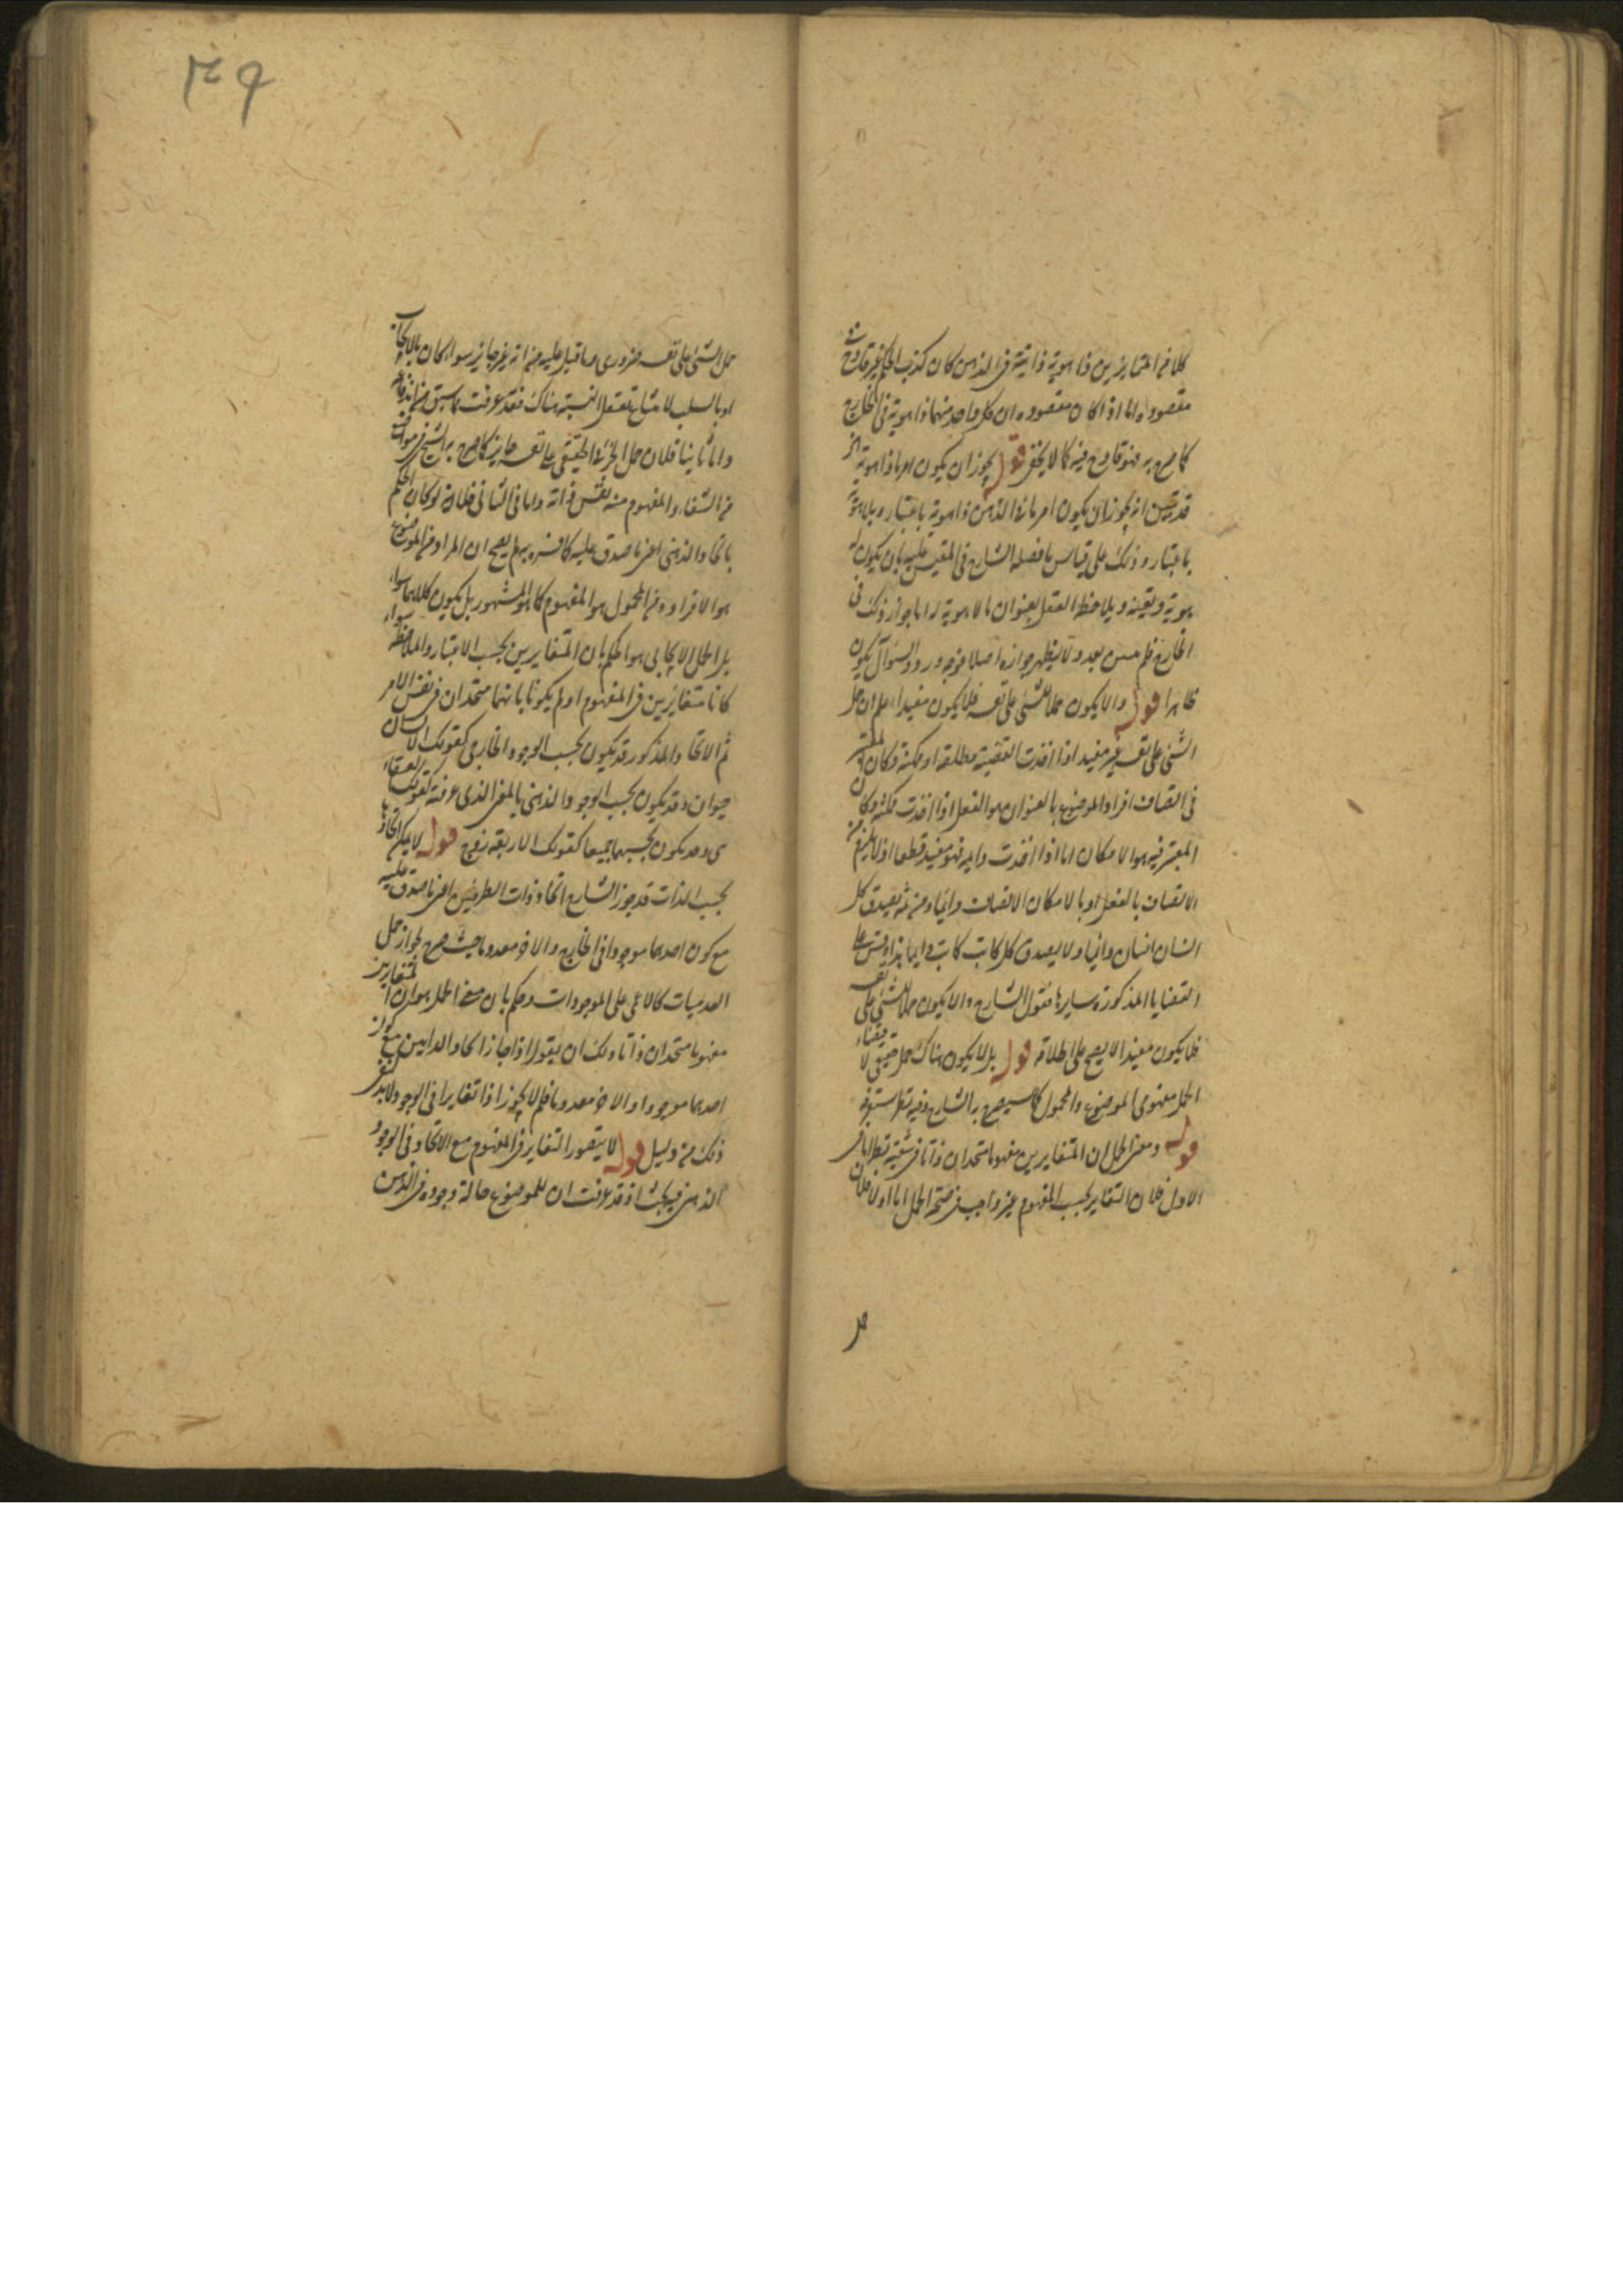 كلا من المتمايزين ذا هوية ذاتية في الذهن كان كذب الحكم غير قادح في
مقصوده اما اذا كان مقصوده ان كل واحد منهما ذا هوية في الخارج
كما صرح به فهو قادح فيه كما لا يخفى قوله يجوز ان يكون امر ما ذا هوية
قد تبين انه يجوز ان يكون امر ما في الذهن ذا هوية باعتبار وبلا هوية
باعتبار وذلك على قياس ما فصله الشارح في المقيس عليه بان يكون له
هوية وتعينه ويلاحظه العقل بعنوان ما لا هوية له اما جواز ذلك في
الخارج فلم يتبين بعد ولا يظهر جوازه اصلا فوجه ورود السؤال يكون
ظاهرا قوله والا يكون حملا للشئ على نفسه فلا يكون مفيدا اعلم ان حمل
الشئ على نفسه غير مفيد اذا اخذت القضية مطلقة او ممكنة وكان المعتبر
في اتصاف افراد الموضوع بالعنوان هو الفعل او اذا اخذت ممكنة وكان
المعتبر فيه هو الامكان اما اذا اخذت دايمة فهو مفيد قطعا اذ لا يلزم من
الاتصاف بالفعل او بالامكان الاتصاف دائما ومن ثمه يصدق كل
انسان انسان دائما ولا يصدق كل كاتب كاتب دايما هذا وقس على
القضايا المذكورة سايرها فقول الشارح والا يكون حملا للشئ على نفسه
فلا يكون مفيدا لا يصح على اطلاقه قوله بل لا يكون هناك حمل حقيقي لاقتضاء
الحمل مفهومي الموضوع والمحمول كما سيصرح به الشارح وفيه نظر ستعرفه
قوله ومعنى الحمل ان المتغايرين مفهوما متحدان ذاتا في شقيه نظر اما في
الاول فلان التغاير بحسب المفهوم غير واجب في صحة الحمل اما اولا فلان
حمل الشئ على نفسه ضروري وما قيل عليه من انه غير جايز سواء كان بالايجاب
او بالسلب لامتناع تعقل النسبة هناك فقد عرفت مما سبق
واما ثانيا فلان حمل الجزئي الحقيقي على نفسه جايز كما صرح به الشيخ في مواضع
من الشفاء والمفهوم منه نفس ذاته واما في الثاني فلانه لو كان الحكم
باتحاد الذهني اعني ما صدق عليه كما فسره به لم يصح ان المراد من الموضوع
هو الافراد ومن المحمول هو المفهوم كما هو المشهور بل يكون كلاهما سواء
بل الحمل الايجابي هو الحكم بان المتغايرين بحسب الاعتبار والملاحظة سواء
كانا متغايرين في المفهوم او لم يكونا بانهما متحدان في نفس الامر
ثم الاتحاد المذكور قد يكون بحسب الوجود الخارجي كقولك الانسان
حيوان وقد يكون بحسب الوجود الذهني بالمعنى الذي عرفته كقولك العنقاء
وقد يكون بحسبهما جميعا كقولك الاربعة زوج قوله لا يمكن اتحادهما
بحسب الذات قد جوز الشارح اتحاد ذات الطرفين اعني ما صدق عليه
مع كون احدهما موجودا في الخارج والاخر معدوما حيث صرح بجواز حمل
العدميات كالاعمى على الموجودات وحكم بان معنى الحمل هو ان المتغايرين
مفهوما متحدان ذاتا ولك ان يقول اذا جاز اتحاد الذاتين مع كون
احدهما موجودا والاخر معدوما فلم لا يجوز اذا تغايرا في الوجود لا بد لنفي
ذلك من دليل قوله لا يتصور التغاير في المفهوم مع الاتحاد في الوجود
الذهني فيه بحث اذ قد عرفت ان للموضوع حالة وجوده في الذهن